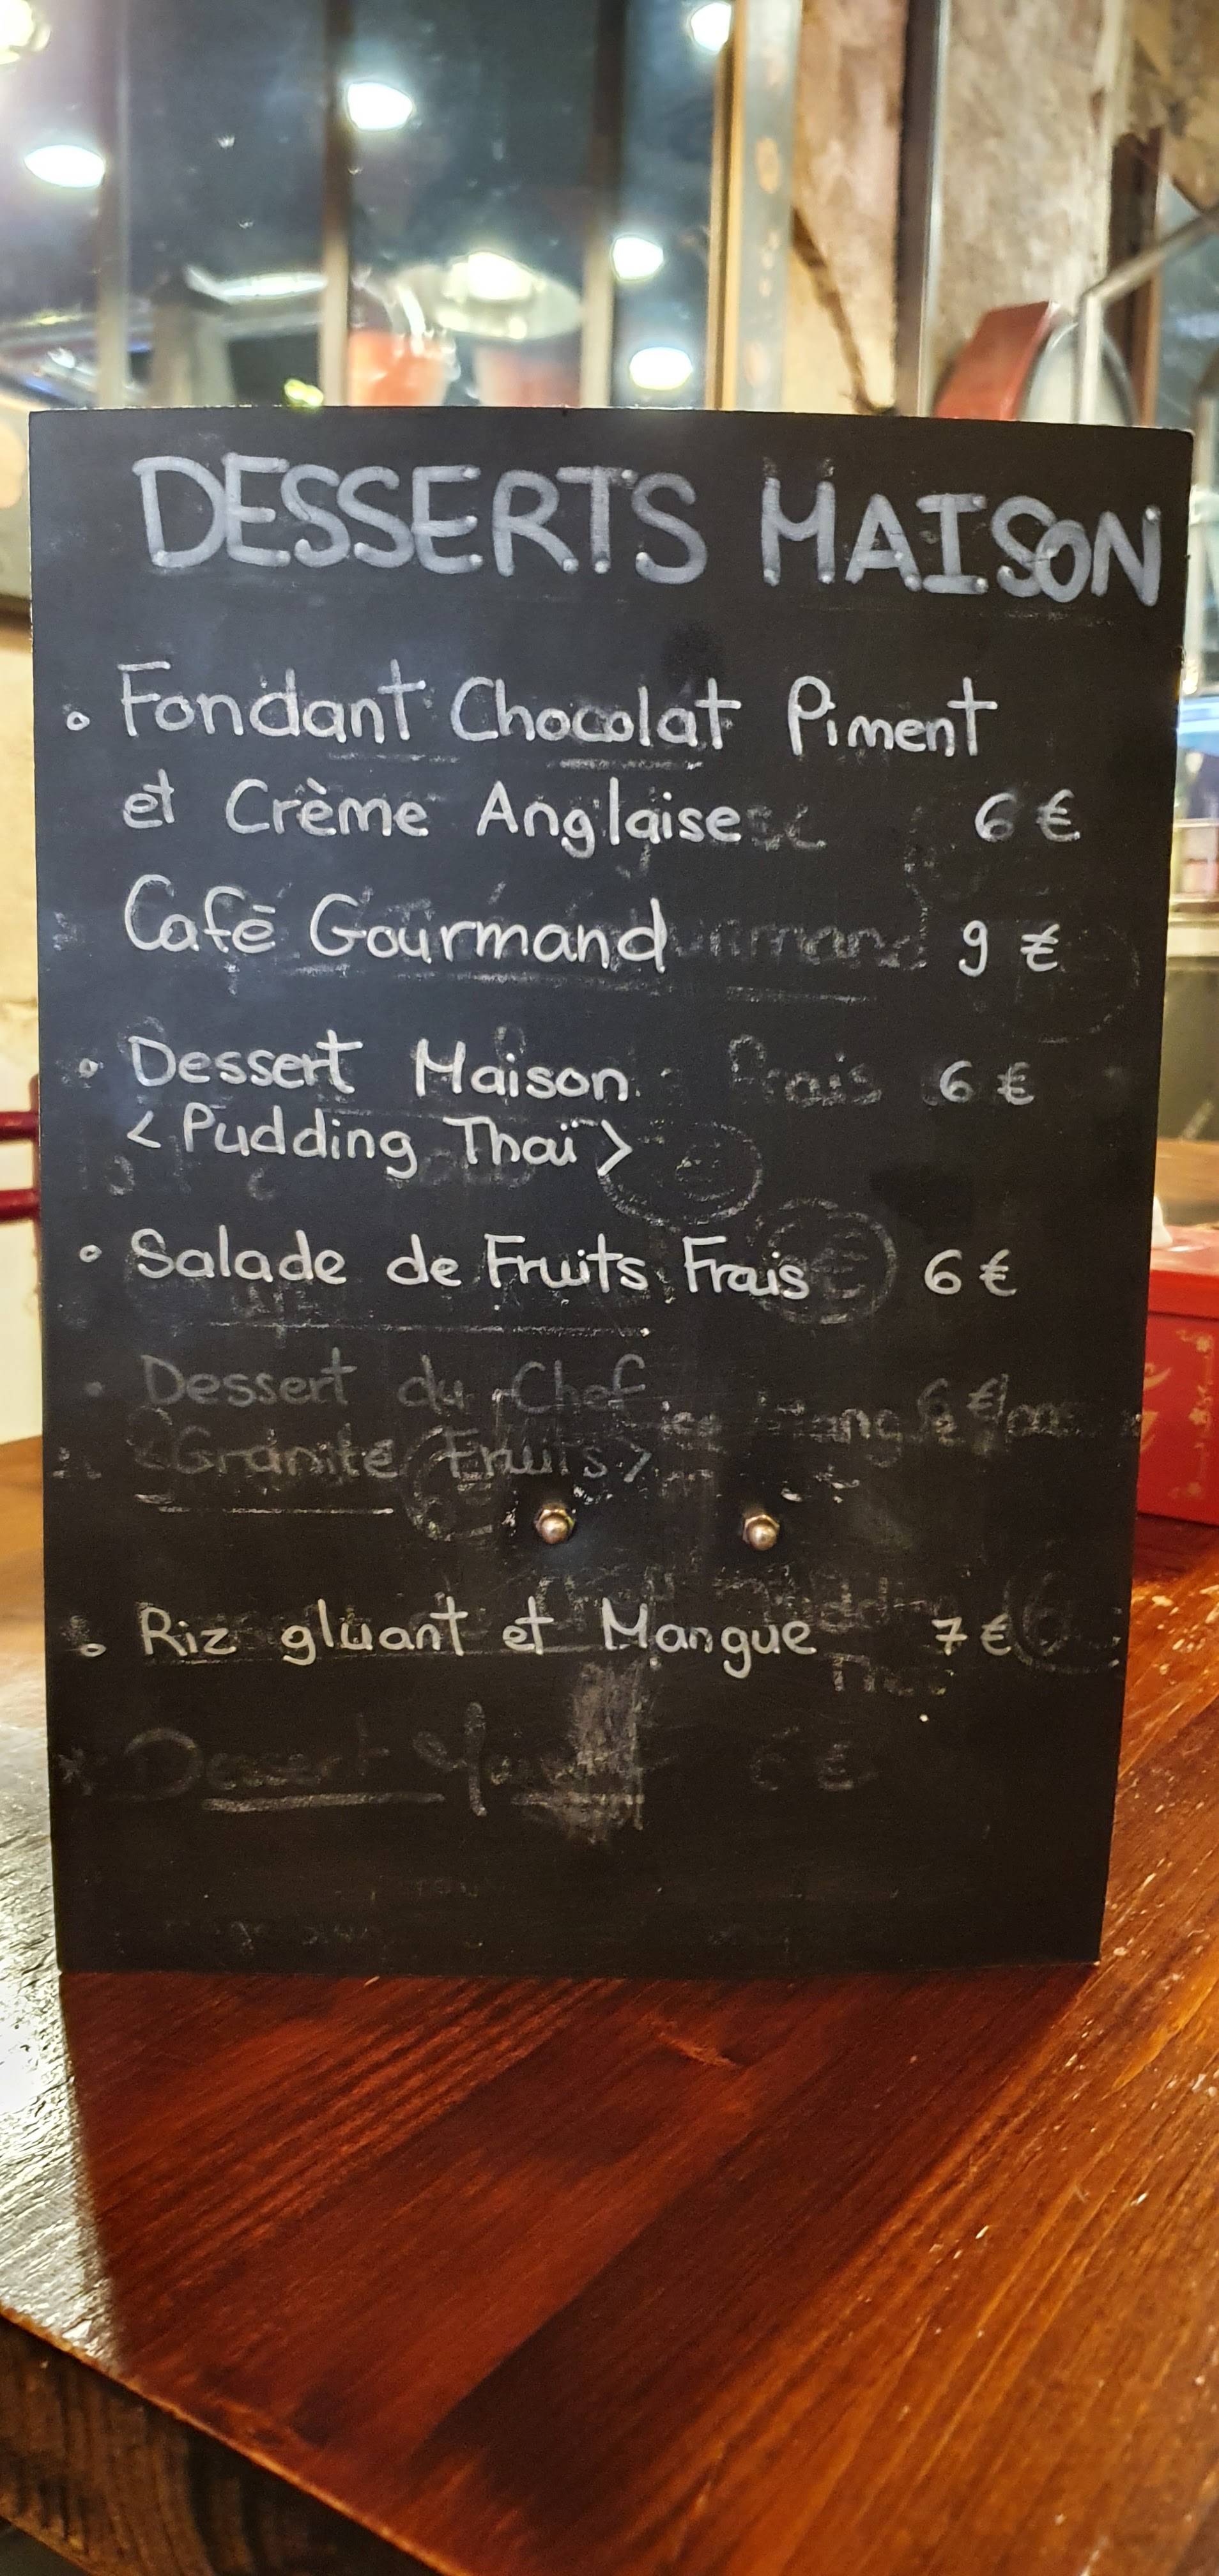 DESSERTS MAISON
Fondant Chocolat Piment
et Crème Anglaise 6 €
Café Gourmand 9 €
Dessert Maison 6 €
<Pudding Thaï>
Salade de Fruits Frais 6 €
Dessert du Chef 6 €
<Granité Fruits>
Riz gluant et Mangue 7 €
Dessert 6 €